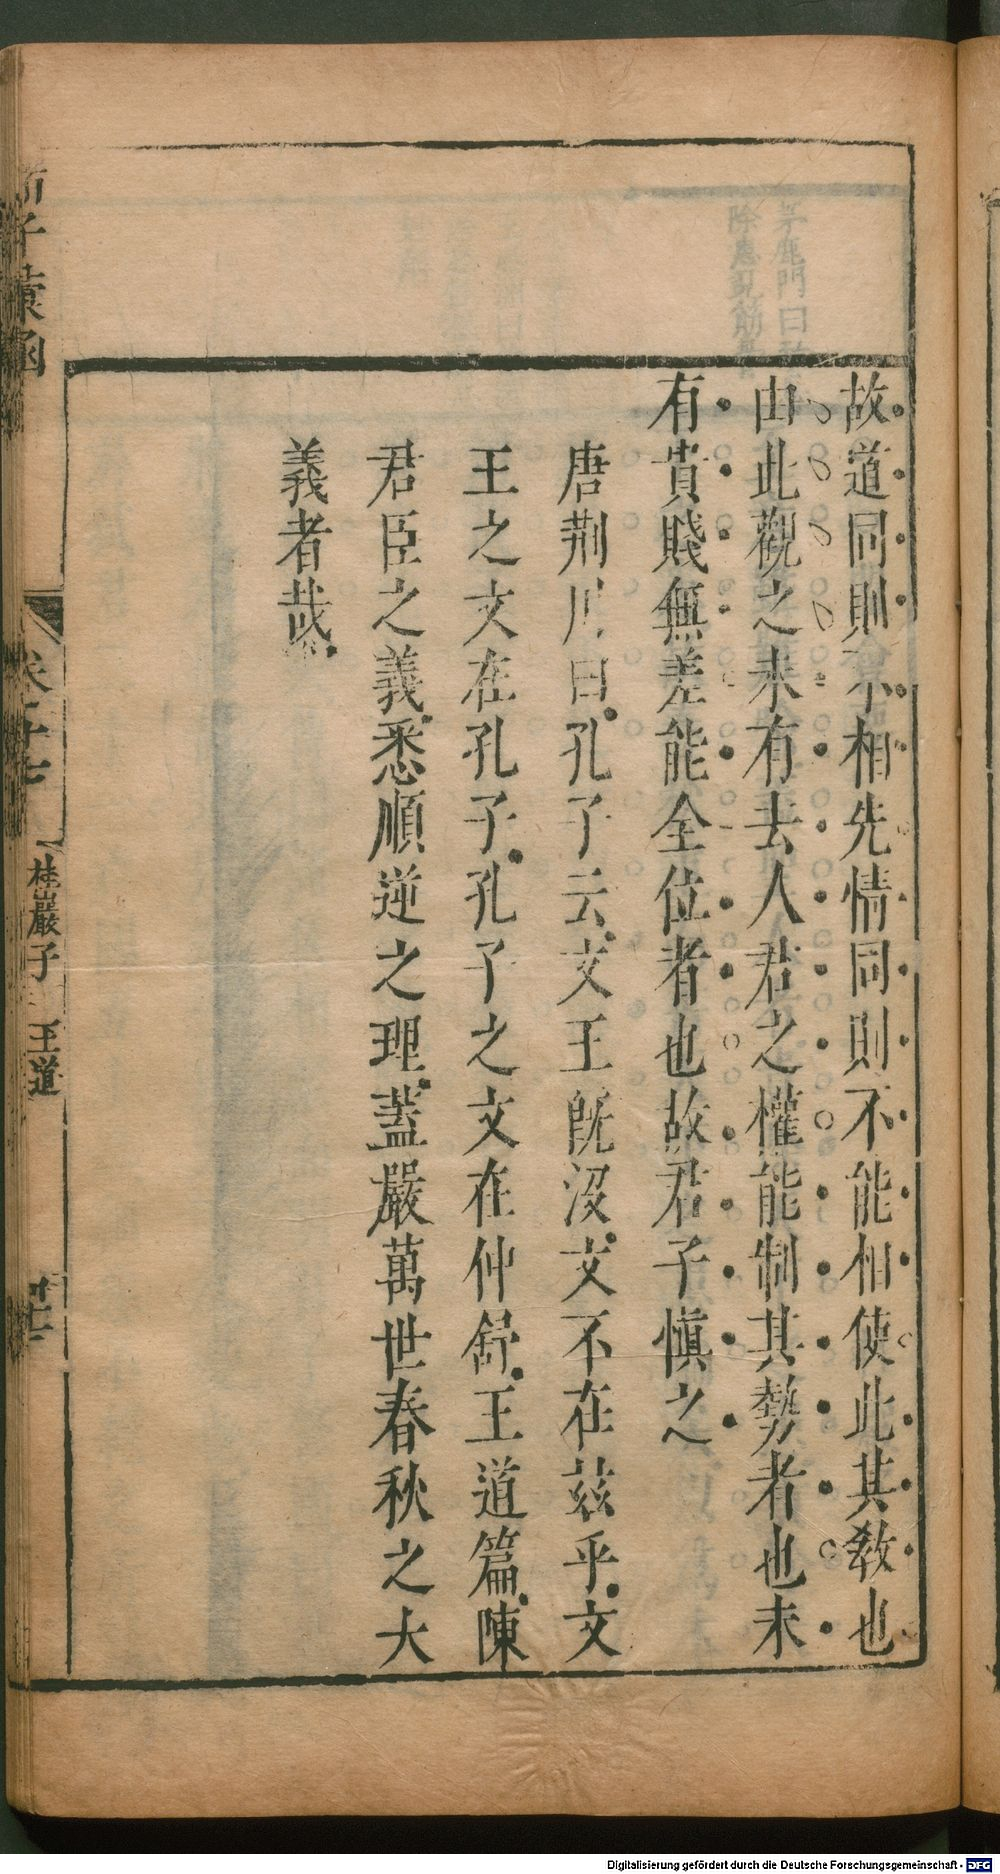 故道同則不相先情同則不能相使此其敎也
由此觀之未有去人君之權能制其勢者也未
有貴賤無差能全位者也故君子慎之
唐荆川曰孔子云文王旣沒文不在茲乎文
王之文在孔子孔子之文在仲舒王道篇陳
君臣之義悉順逆之理蓋嚴萬世春秋之大
義者哉
子彙函
卷二十七
桂巖子 王道
Digitalisierung gefördert durch die Deutsche Forschungsgemeinschaft - DFG